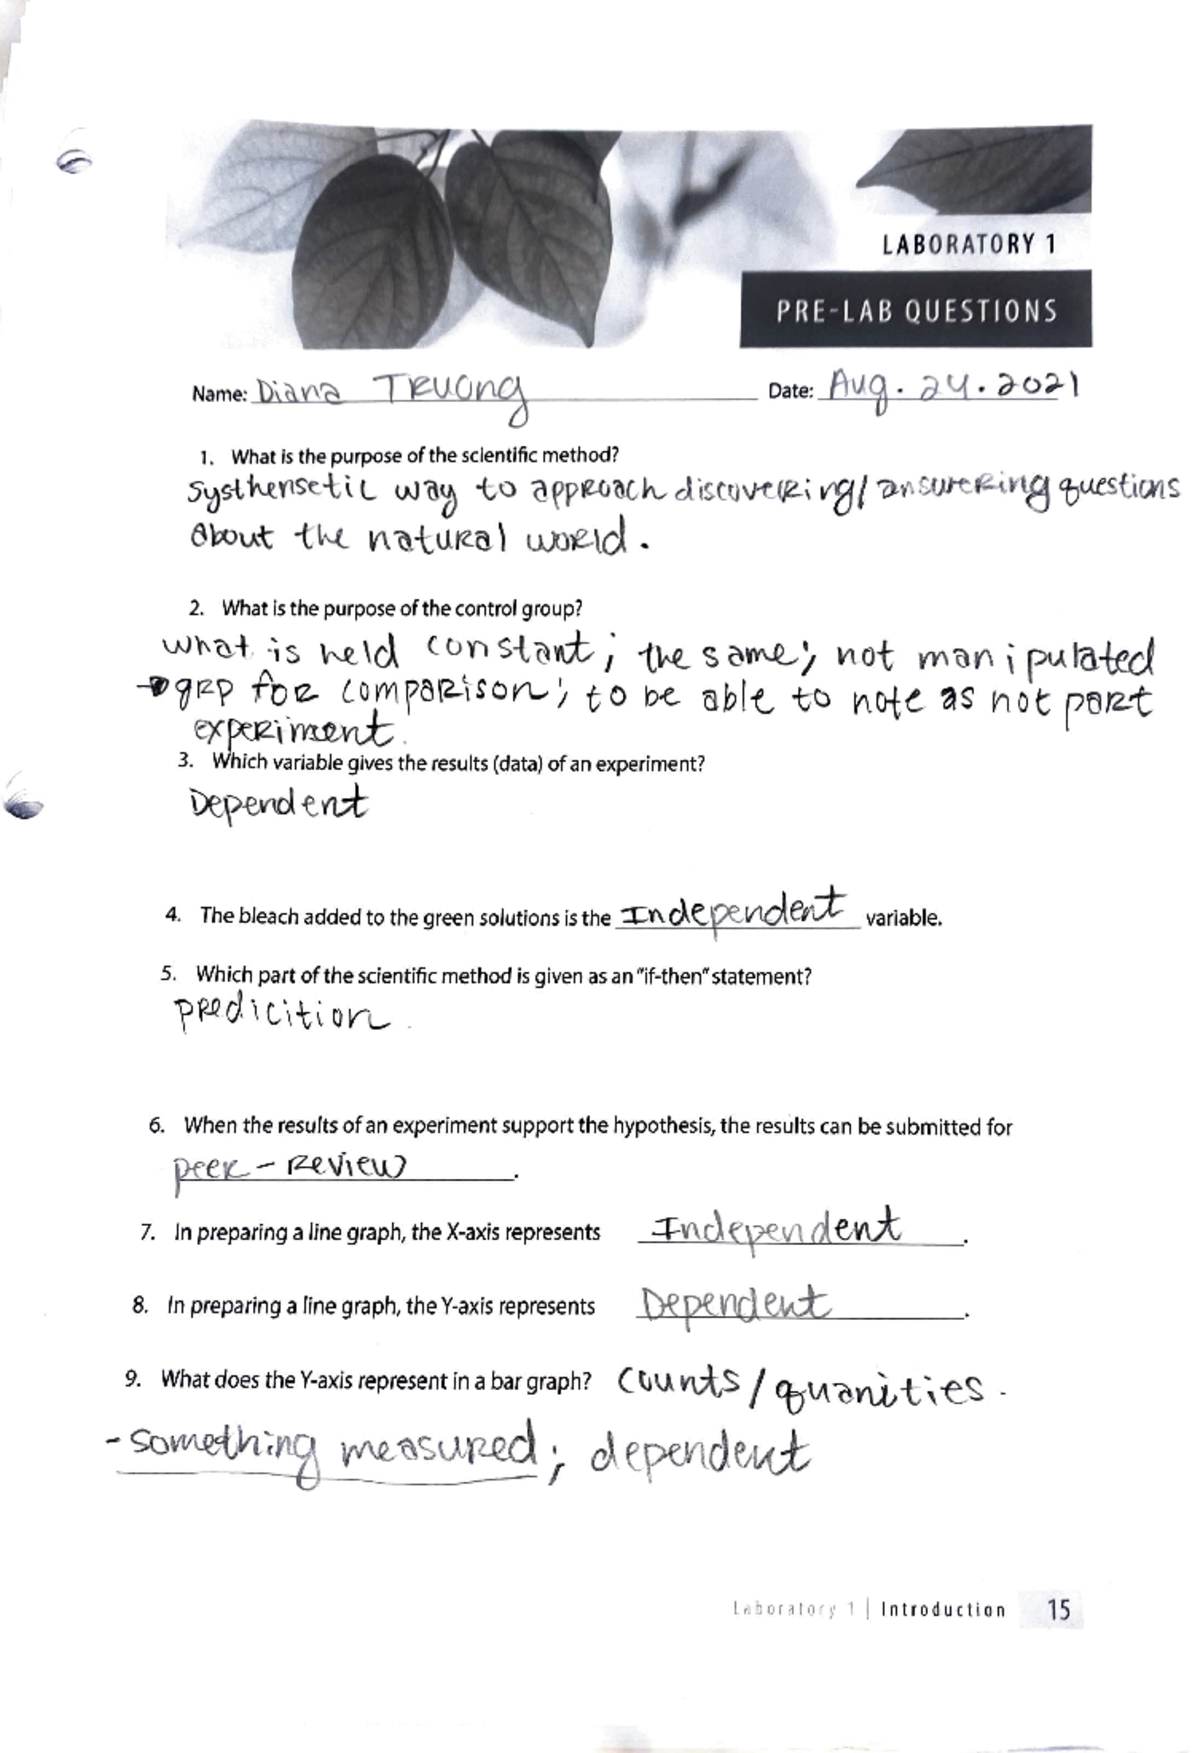 LABORATORY 1
PRE-LAB QUESTIONS
Name: Diana Truong Date: Aug. 24. 2021
1. What is the purpose of the scientific method?
Systhensetic way to approach discovering/answering questions
about the natural world.
2. What is the purpose of the control group?
what is held constant; the same; not manipulated
→ grp for comparison; to be able to note as not part
experiment.
3. Which variable gives the results (data) of an experiment?
Dependent
4. The bleach added to the green solutions is the Independent variable.
5. Which part of the scientific method is given as an "if-then" statement?
predicition.
6. When the results of an experiment support the hypothesis, the results can be submitted for
peer-review.
7. In preparing a line graph, the X-axis represents Independent.
8. In preparing a line graph, the Y-axis represents Dependent.
9. What does the Y-axis represent in a bar graph? counts/quanities.
- something measured; dependent
Laboratory 1 | Introduction 15